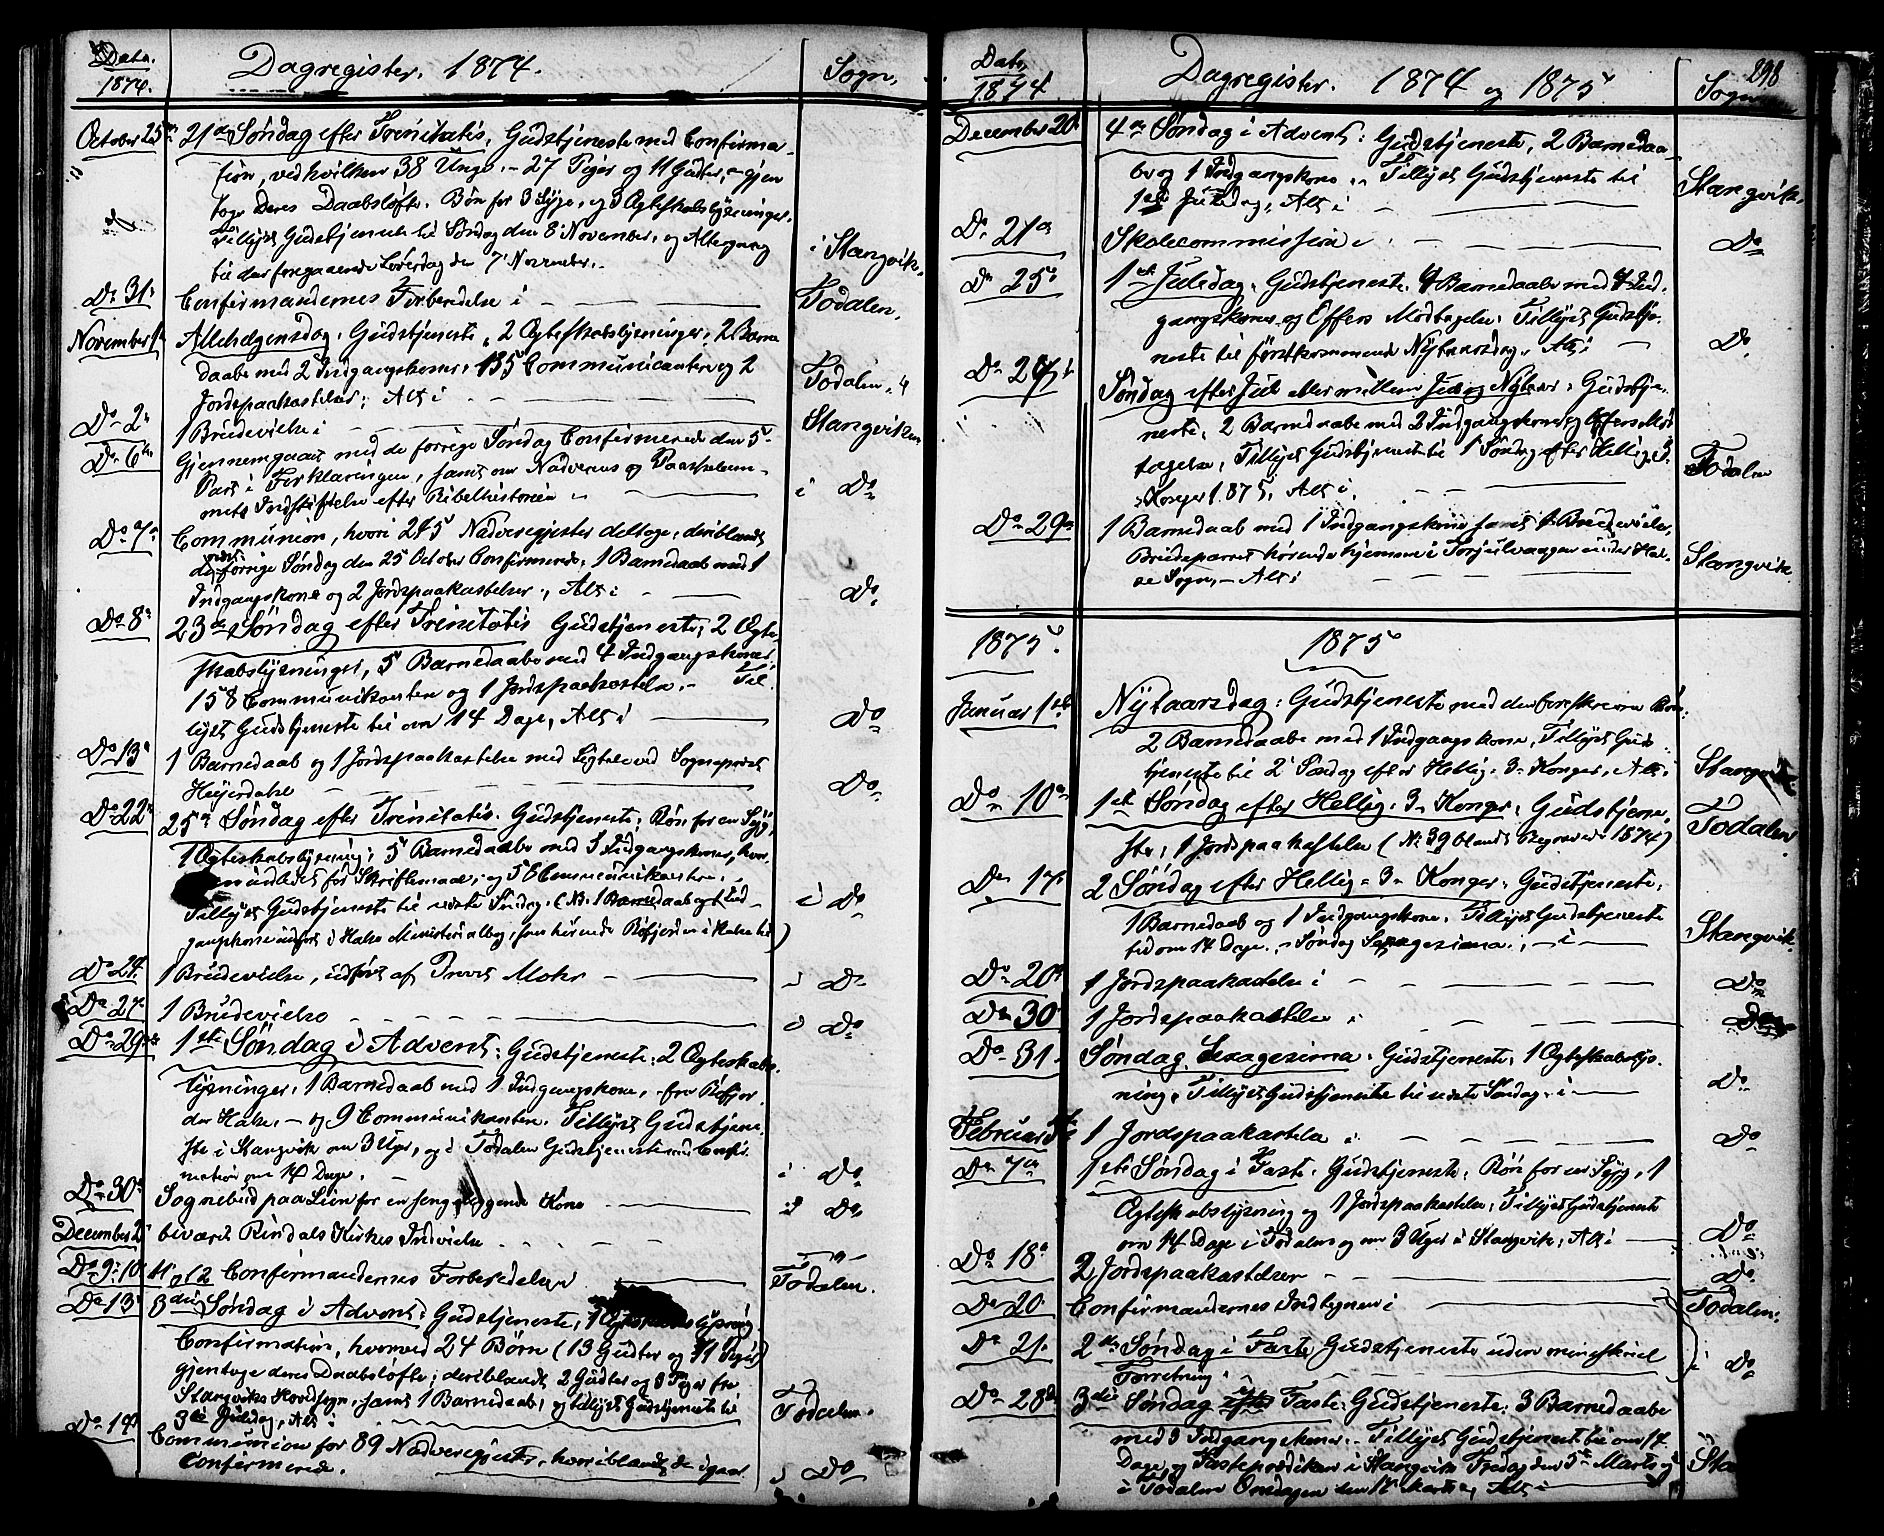 Dato.
1874.
Dagregister. 1874.
Sogn.
October 25de
21de Søndag efter Trinitatis, Gudstjeneste med Confirma-
tion, ved hvilken 38 Unge, - 27 Piger og 11 Gutter, - gjen
tog Deres Daabsløfte. Bøn for 3 Syge, og 3 Ægteskabslysninger.
Tillyst Gudstjeneste til Søndag den 8 November, og Altergang
til den foregaaende Løverdag den 7 November. -
i Stangvik.
Do 31.
Confirmandernes Forberedelse i
Todalen.
November 1.
Allehelgensdag, Gudstjeneste, 2 Ægteskabslysninger, 2 Barne
daabe med 2 Indgangskoner, 135 Communicantere og 2
Jordspaakastelser; Alt i
Todalen.
Do 2.
1 Brudevielse i
Stangviken
Do 6te
Gjennemgaaet med de forrige Søndag Confirmerede den 5.
Part i Forklaringen, samt om Nadverens og Paaskelam-
mets Indstiftelse efter Bibelhistorien
i Do
Do 7de
Communion, hvori 245 Nadvergjester deltoge, deriblandt
de forrige Søndag den 25 October Confirmerede, 1 Barnedaab med 1
Indgangskone og 2 Jordspaakastelser, Alt i
Do.
Do 8.
23de Søndag efter Trinitatis Gudstjeneste; 2 Ægte-
skabslysninger, 5 Barnedaabe med 4 Indgangskoner,
158 Communikantere og 1 Jordspaakastelse. - Til
lyst Gudstjeneste til om 14 Dage, Alt i
Do
Do 13.
1 Barnedaab og 1 Jordspaakastelse med Ligtale ved Sognepræst
Heyerdahl
Do.
Do 22.
25de Søndag efter Trinitatis. Gudstjeneste; Bøn for en Syg,
1 Ægteskabslysning; 5 Barnedaabe med 5 Indgangskoner, hvor
for Skriftemaal, og 58 Communikantere.
Tillyst Gudstjeneste til næste Søndag. (NB. 1 Barnedaab og 1 Ind-
gangskone indført i Halse Ministerialbog, som hørende Bøfjorden i Halse til)
i Do
Do 24.
1 Brudevielse, udført af Provst Mohr
i Do
Do 27.
1 Brudevielse
i Do
Do 29de
1ste Søndag i Advent: Gudstjeneste: 2 Ægteskabs-
lysninger, 1 Barnedaab med 1 Indgangskone, - fra Bøfjor
den Halse, - og 9 Communikantere. Tillyst Gudstjene-
ste i Stangvik om 3 Uger, og i Todalen Gudstjeneste med Confir
mation om 14 Dage.
i Do
Do 30.
Sognebud paa Lien for en sengeliggende Kone
i Do.
December 2.
bivaaret Rindals Kirkes Indvielse
Do 9. 10.
11 og 12 Confirmandernes Forberedelse
Todalen.
Do 13
3die Søndag i Advent: Gudstjeneste, 1 Ægteskabslysning.
Confirmation, hvorved 24 Børn (13 Gutter og 11 Piger)
gjentoge deres Daabsløfte, deriblandt 2 Gutter og 3 Piger fra
Stangviks Hovedsogn, samt 1 Barnedaab, og tillyst Gudstjeneste til
3die Juledag, Alt i
Todalen.
Do 14.
Communion for 89 Nadvergjester, hvoriblandt de igaar
Confirmerede.
i Do
Dato
1874
Dagregister. 1874 og 1875
Sogn
298
December 20.
4de Søndag i Advent: Gudstjeneste, 2 Barnedaa-
be og 1 Indgangskone. Tillyst Gudstjeneste til
1ste Juledag, Alt i
Stangvik.
Do 21de
Skolecommission i
Do
Do 25.
1ste Juledag. Gudstjeneste. 4 Barnedaabe med 4 Ind.
gangskoner og Offers Modtagelse. Tillyst Gudstje-
neste til førstkommende Nytaarsdag, Alt i
Do.
Do 27.
Søndag efter Jul eller mellem Jul og Nytaar: Gudstje-
neste, 2 Barnedaabe med 2 Indgangskoner, og Offers Mod
tagelse, Tillyst Gudstjeneste til 1 Søndag efter Hellig 3
Konger 1875, Alt i.
Todalen
Do 29de
1 Barnedaab med 1 Indgangskone samt 1 Brudevielse,
Brudeparret hørende hjemme i Torjulvaagen under Hal-
se Sogn, - Alt i
Stangvik.
1875.
1875
Januar 1ste
Nytaarsdag: Gudstjeneste med den foreskrevne Bøn:
2 Barnedaabe med 1 Indgangskone, Tillyst Guds
tjeneste til 2 Søndag efter Hellig 3 Konger, Alt i
Stangvik
Do 10de
1ste Søndag efter Hellig 3 Konger: Gudstjene-
ste; 1 Jordspaakastelse (No 39 blandt Begravede 1874)
Todalen
Do 17.
2 Søndag efter Hellig 3 Konger: Gudstjeneste,
1 Barnedaab og 1 Indgangskone. Tillyst Gudstjeneste
til om 14 Dage. - Søndag Sexagesima, - i
Stangvik.
Do 20.
1 Jordspaakastelse i
Do
Do 30
1 Jordspaakastelse i
Do
Do 31.
Søndag Sexagesima. Gudstjeneste; 1 Ægteskabslys-
ning, Tillyst Gudstjeneste til næste Søndag. i
Do
Februar
1 Jordspaakastelse i
Do
Do 7de
1ste Søndag i Faste. Gudstjeneste. Bøn for en Syg, 1
Ægteskabslysning og 1 Jordspaakastelse; Tillyst Gudstjeneste
om 14 Dage i Todalen og om 3 Uger i Stangvik; Alt i
Do
Do 18.
2 Jordspaakastelser
Do.
Do 20
Confirmandernes Indtegnen i
Todalen
Do 21.
2den Søndag i Faste Gudstjeneste uden ministeriel
Forretning.
i Do
Do 28de
3die Søndag i Faste: Gudstjeneste: 3 Barnedaabe
med 3 Indgangskoner. - Tillyst Gudstjeneste til om 14
Dage og Fasteprædiken i Stangvik Fredag den 5te Marts og
i Todalen Onsdagen den 17 Marts, Alt i
Sta